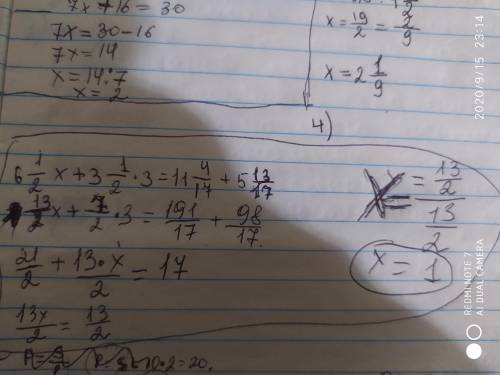 7x+16=30
7x=30-16
7x=14
x=14:7
x=2
x=19/2=2/9
x=2 1/9
4)
6 1/2 x+3 1/2·3=11 4/17+5 13/17
13/2 x+7/2·3=191/17+98/17
21/2+13·x/2=17
13x/2=13/2
x=13/2/13/2
x=1
·2=20.
2020/9/15 23:14
REDMI NOTE 7
AI DUAL CAMERA